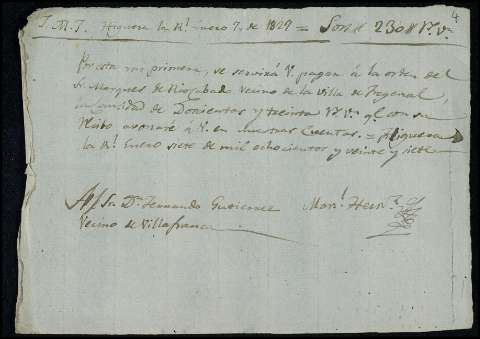 4
J. M. J. Higuera la Rl. Enero 7, de 1827 = Son # 230 # Rs. Vn.
Por esta mi primera, se servirá V. pagar á la orden del
Sr. Marques de Riocabado Vecino de la Villa de Fregenal,
la Cantidad de Docientos y treinta Rs. Vn. qe. con su
Recibo abonaré á V. en nuestras Cuentas. = Higuera
la Rl. Enero siete de mil ochocientos y veinte y siete
Sr. Dn. Fernando Gutierrez
Vecino de Villafranca